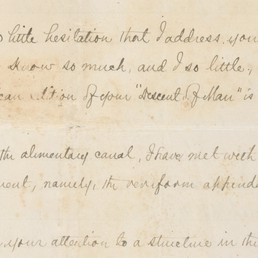 little hesitation that I address you
know so much, and I so little,
can edition of your "Descent of Man" is
the alimentary canal, I have met with
namely, the veriform append
your attention to a structure in the